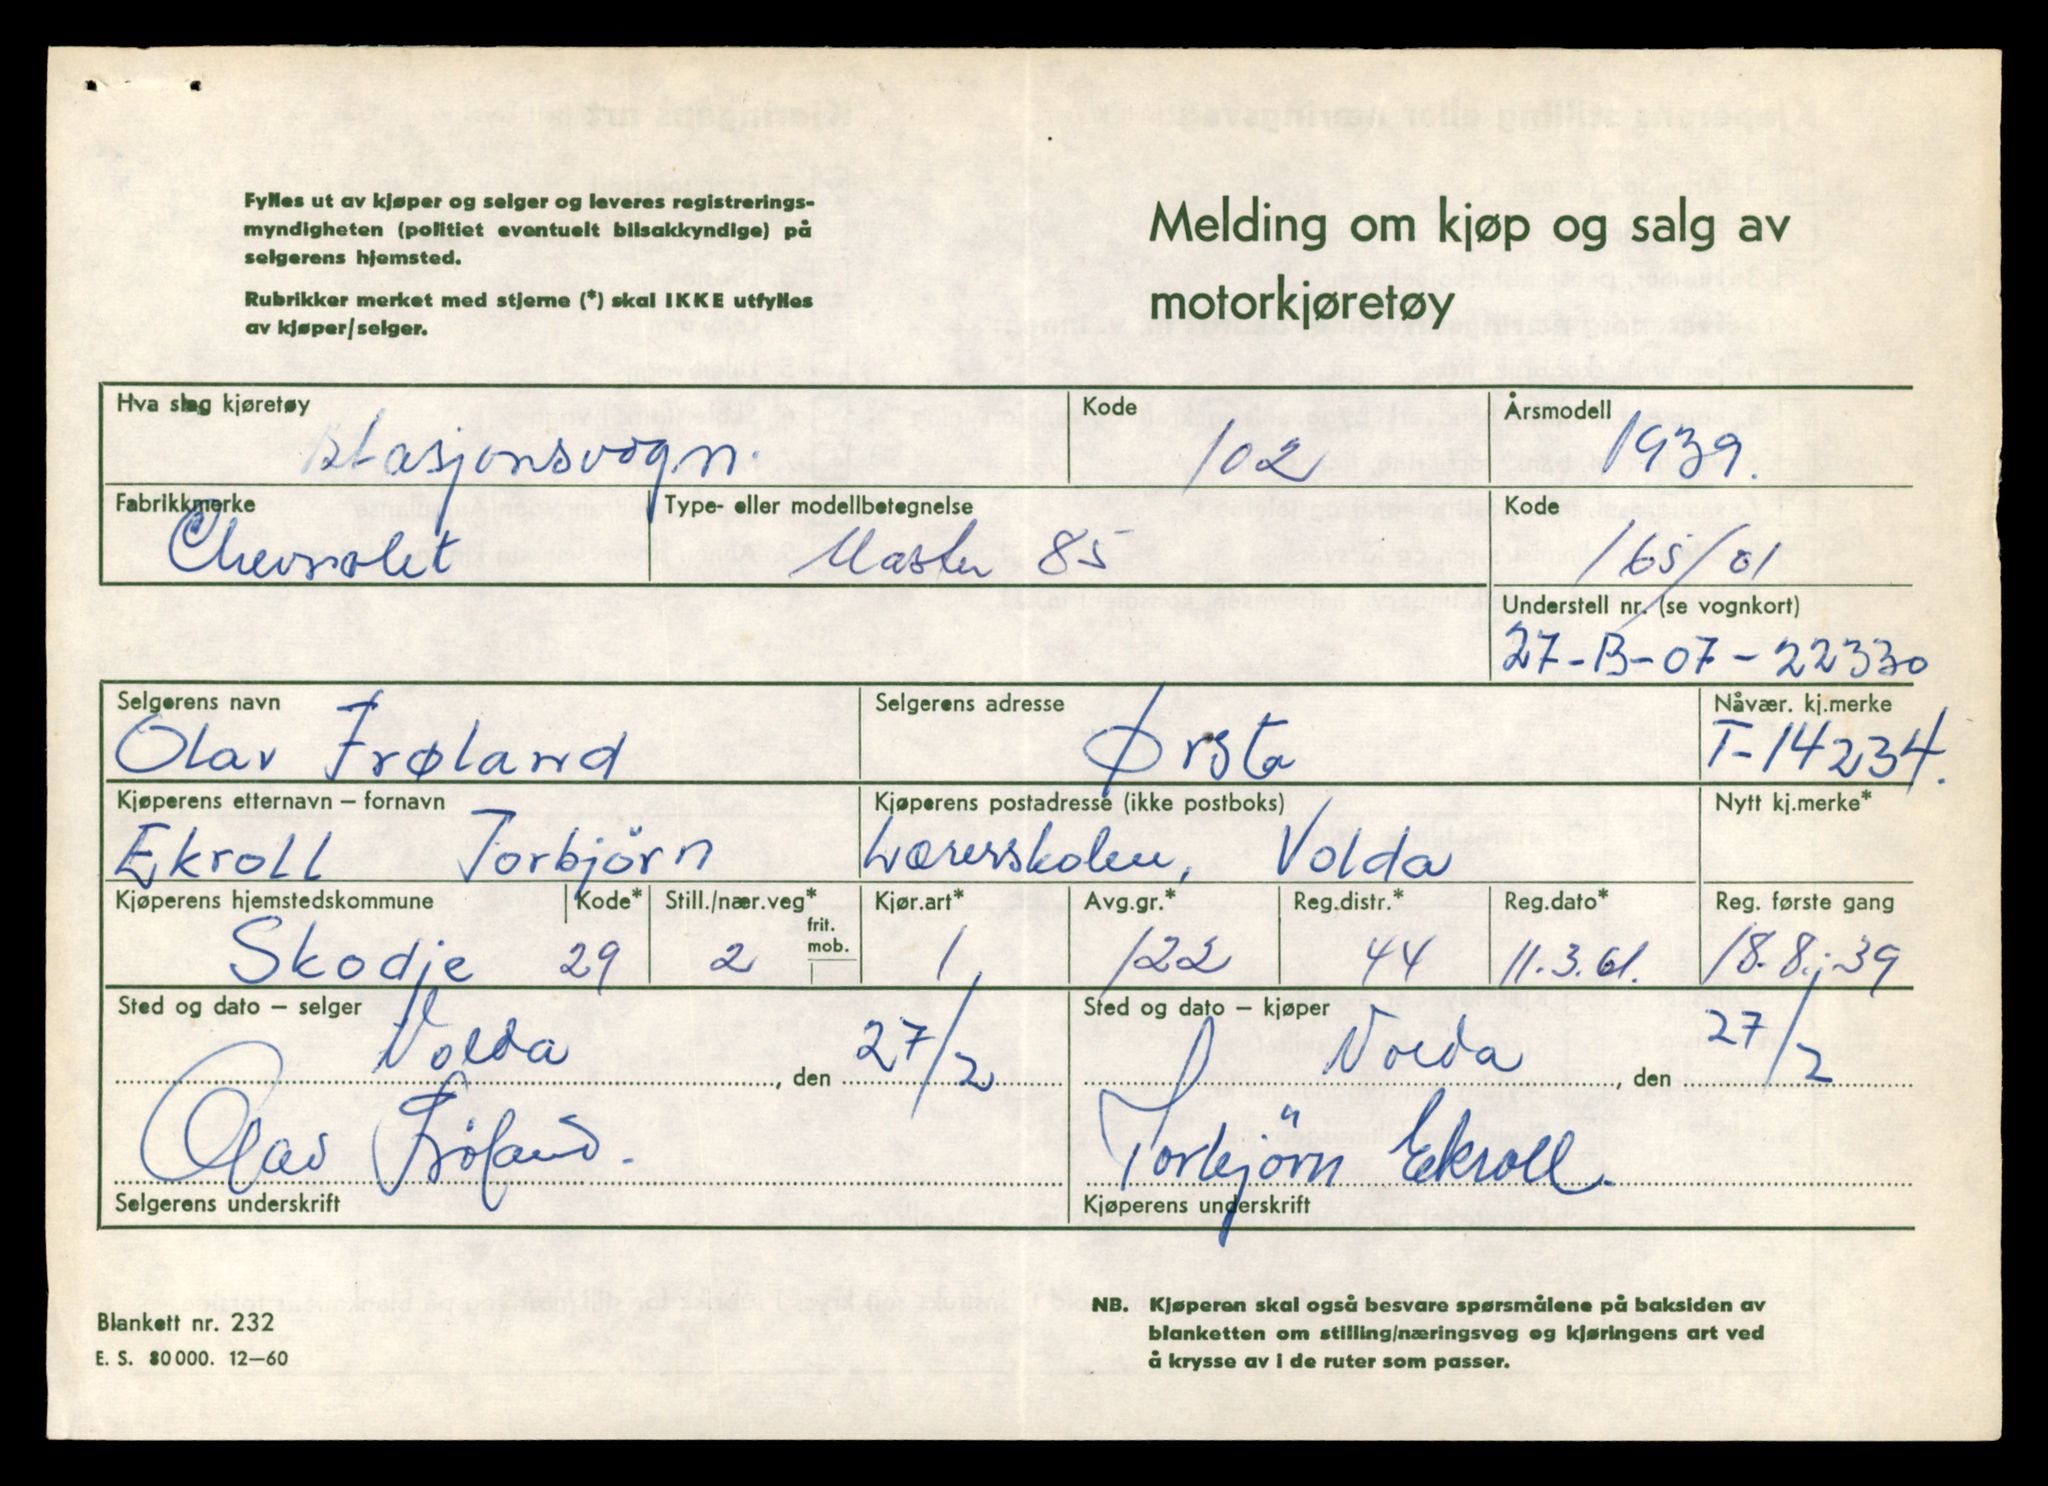 Fylles ut av kjøper og selger og leveres registrerings-
myndigheten (politiet eventuelt bilsakkyndige) på
selgerens hjemsted.
Rubrikker merket med stjerne (*) skal IKKE utfylles
av kjøper/selger.
Melding om kjøp og salg av
motorkjøretøy
Hva slag kjøretøy Kode Årsmodell
Stasjonsvogn. 102 1939.
Fabrikkmerke Type- eller modellbetegnelse Kode
Chevrolet Master 85 165/01
Understell nr. (se vognkort)
27-B-07-22330
Selgerens navn Selgerens adresse Nåvær. kj.merke
Olav Frøland Ørsta T-14234.
Kjøperens etternavn – fornavn Kjøperens postadresse (ikke postboks) Nytt kj.merke*
Ekroll Torbjörn Lærerskolen, Volda
Kjøperens hjemstedskommune Kode* Still./nær.veg* frit. mob. Kjør.art* Avg.gr.* Reg.distr.* Reg.dato* Reg. første gang
Skodje 29 2 1 122 44 11.3.61. 18.8.-39
Sted og dato – selger Sted og dato – kjøper
Volda, den 27/2 Volda, den 27/2
Olav Fröland. Torbjörn Ekroll.
Selgerens underskrift Kjøperens underskrift
Blankett nr. 232
E. S. 80000. 12–60
NB. Kjøperen skal også besvare spørsmålene på baksiden av
blanketten om stilling/næringsveg og kjøringens art ved
å krysse av i de ruter som passer.